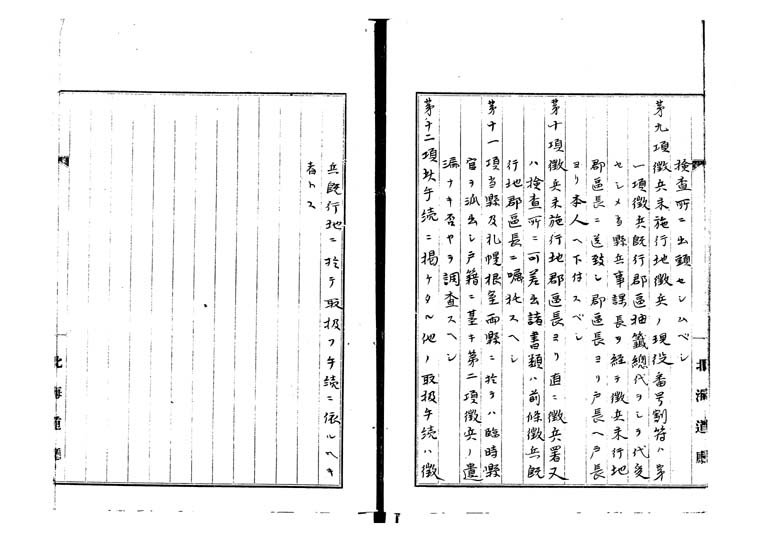 検査所ニ出頭セシムベシ
第九項徴兵未施行地徴兵ノ現役番号割符ハ第
一項徴兵既行郡区抽籤総代ヲシテ代受
セシメ当県兵事課長ヲ経テ徴兵未行地
郡区長ニ送致シ郡区長ヨリ戸長ヘ戸長
ヨリ本人ヘ下付スベシ
第十項徴兵未施行地郡区長ヨリ直ニ徴兵署又
ハ検査所ニ可差出諸書類ハ前條徴兵既
行地郡区長ニ嘱託スヘシ
第十一項当県及札幌根室両県ニ於テハ臨時県
官ヲ派出シ戸籍ニ基キ第二項徴兵ノ遺
漏ナキ否ヤヲ調査スヘシ
第十二項此手続ニ掲ケタル他ノ取扱手続ハ徴
北海道庁
兵既行地ニ於テ取扱フ手続ニ依ルヘキ
者トス
北海道庁